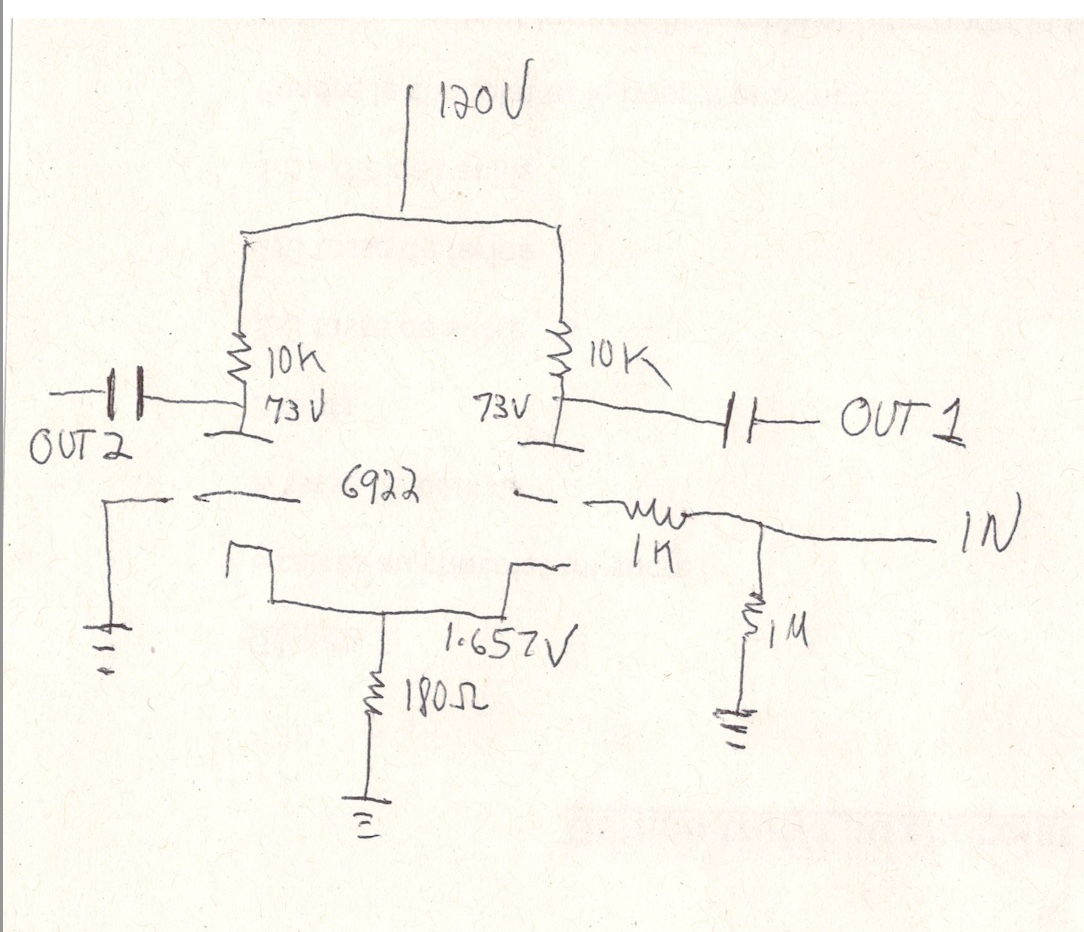 120V
10K
10K
73V
73V
OUT 2
OUT 1
6922
IN
1K
1.657V
1M
180Ω